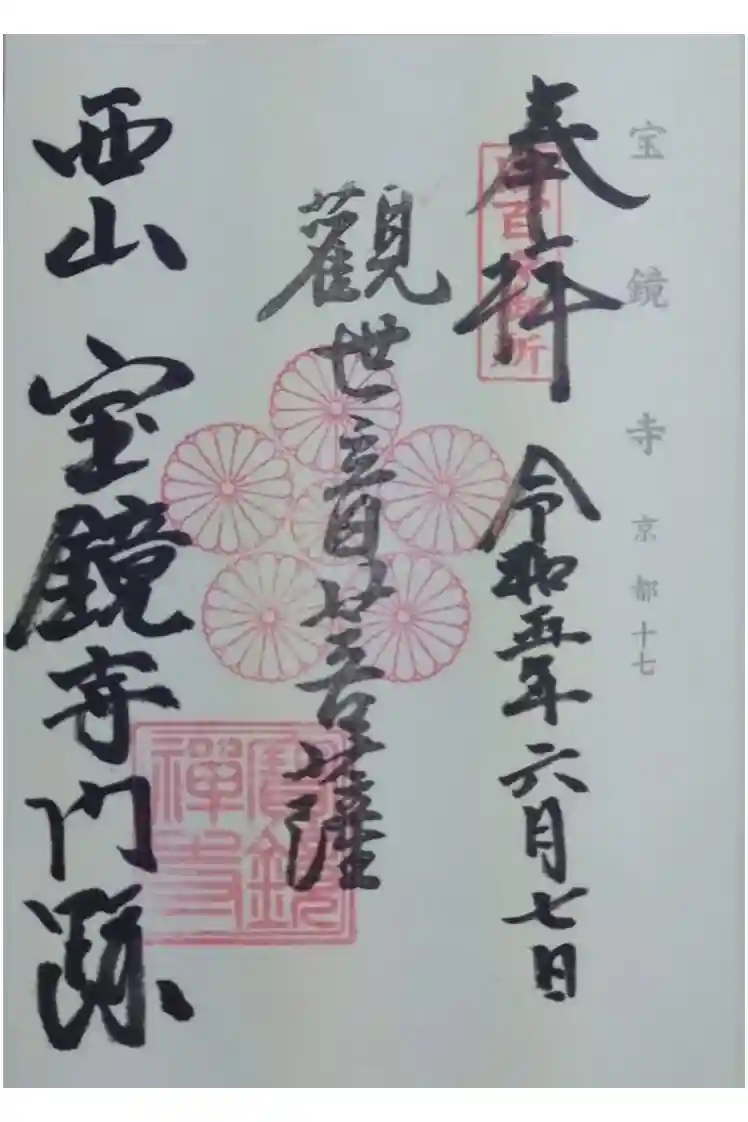 宝鏡寺 京都十七
奉拝
百々御所
令和五年六月七日
觀世音菩薩
寶鏡禪寺
西山 宝鏡寺門跡